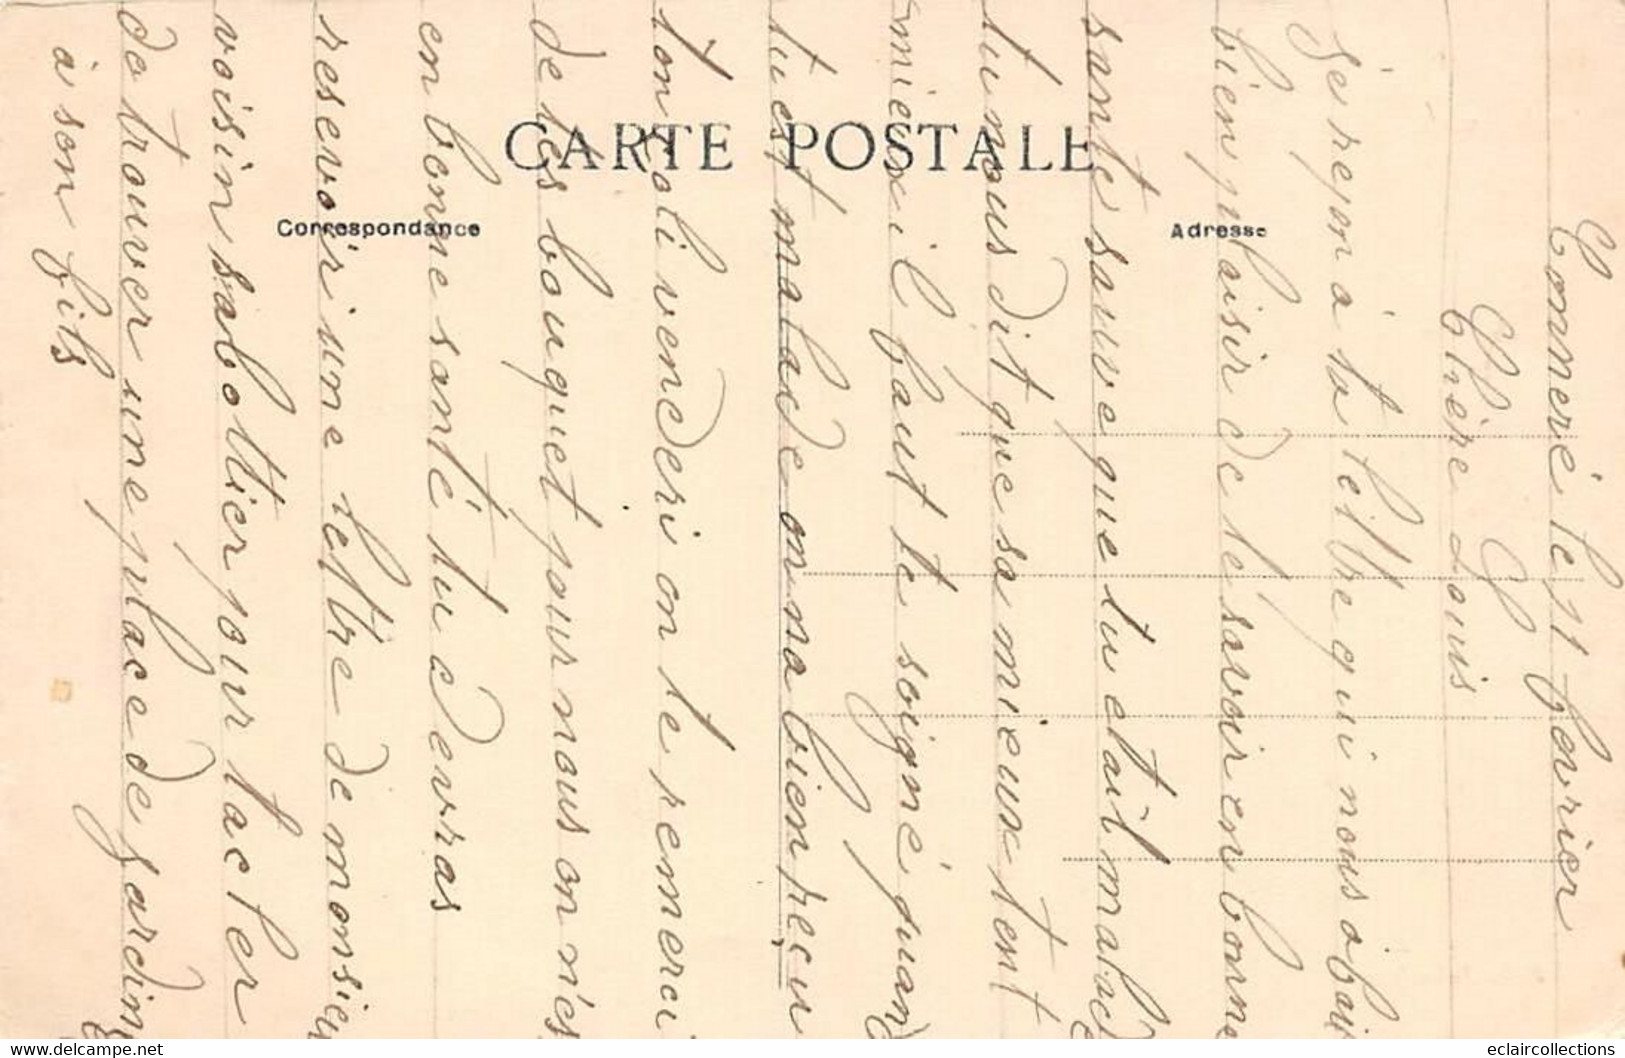 CARTE POSTALE
Correspondance
Adresse
Commeré le 21 fevrier
Chère Louis
je repon a ta lettre qui nous a fai
bien plaisir de te savoir en bonne
sante sauve que tu etait malad
tu nous dit que sa mieux tent
mieux il faut te soigné quand
tu est malade on na bien reçu
ton coli venderi on te remerci
de tes bouquet pour nous on n'es
en bonne santé tu a devras
resevoir une lettre de monsieu
voisin sabottier pour tacter
de trouver une place de jardin
à son fils
eclaircollections
https://www.delcampe.net